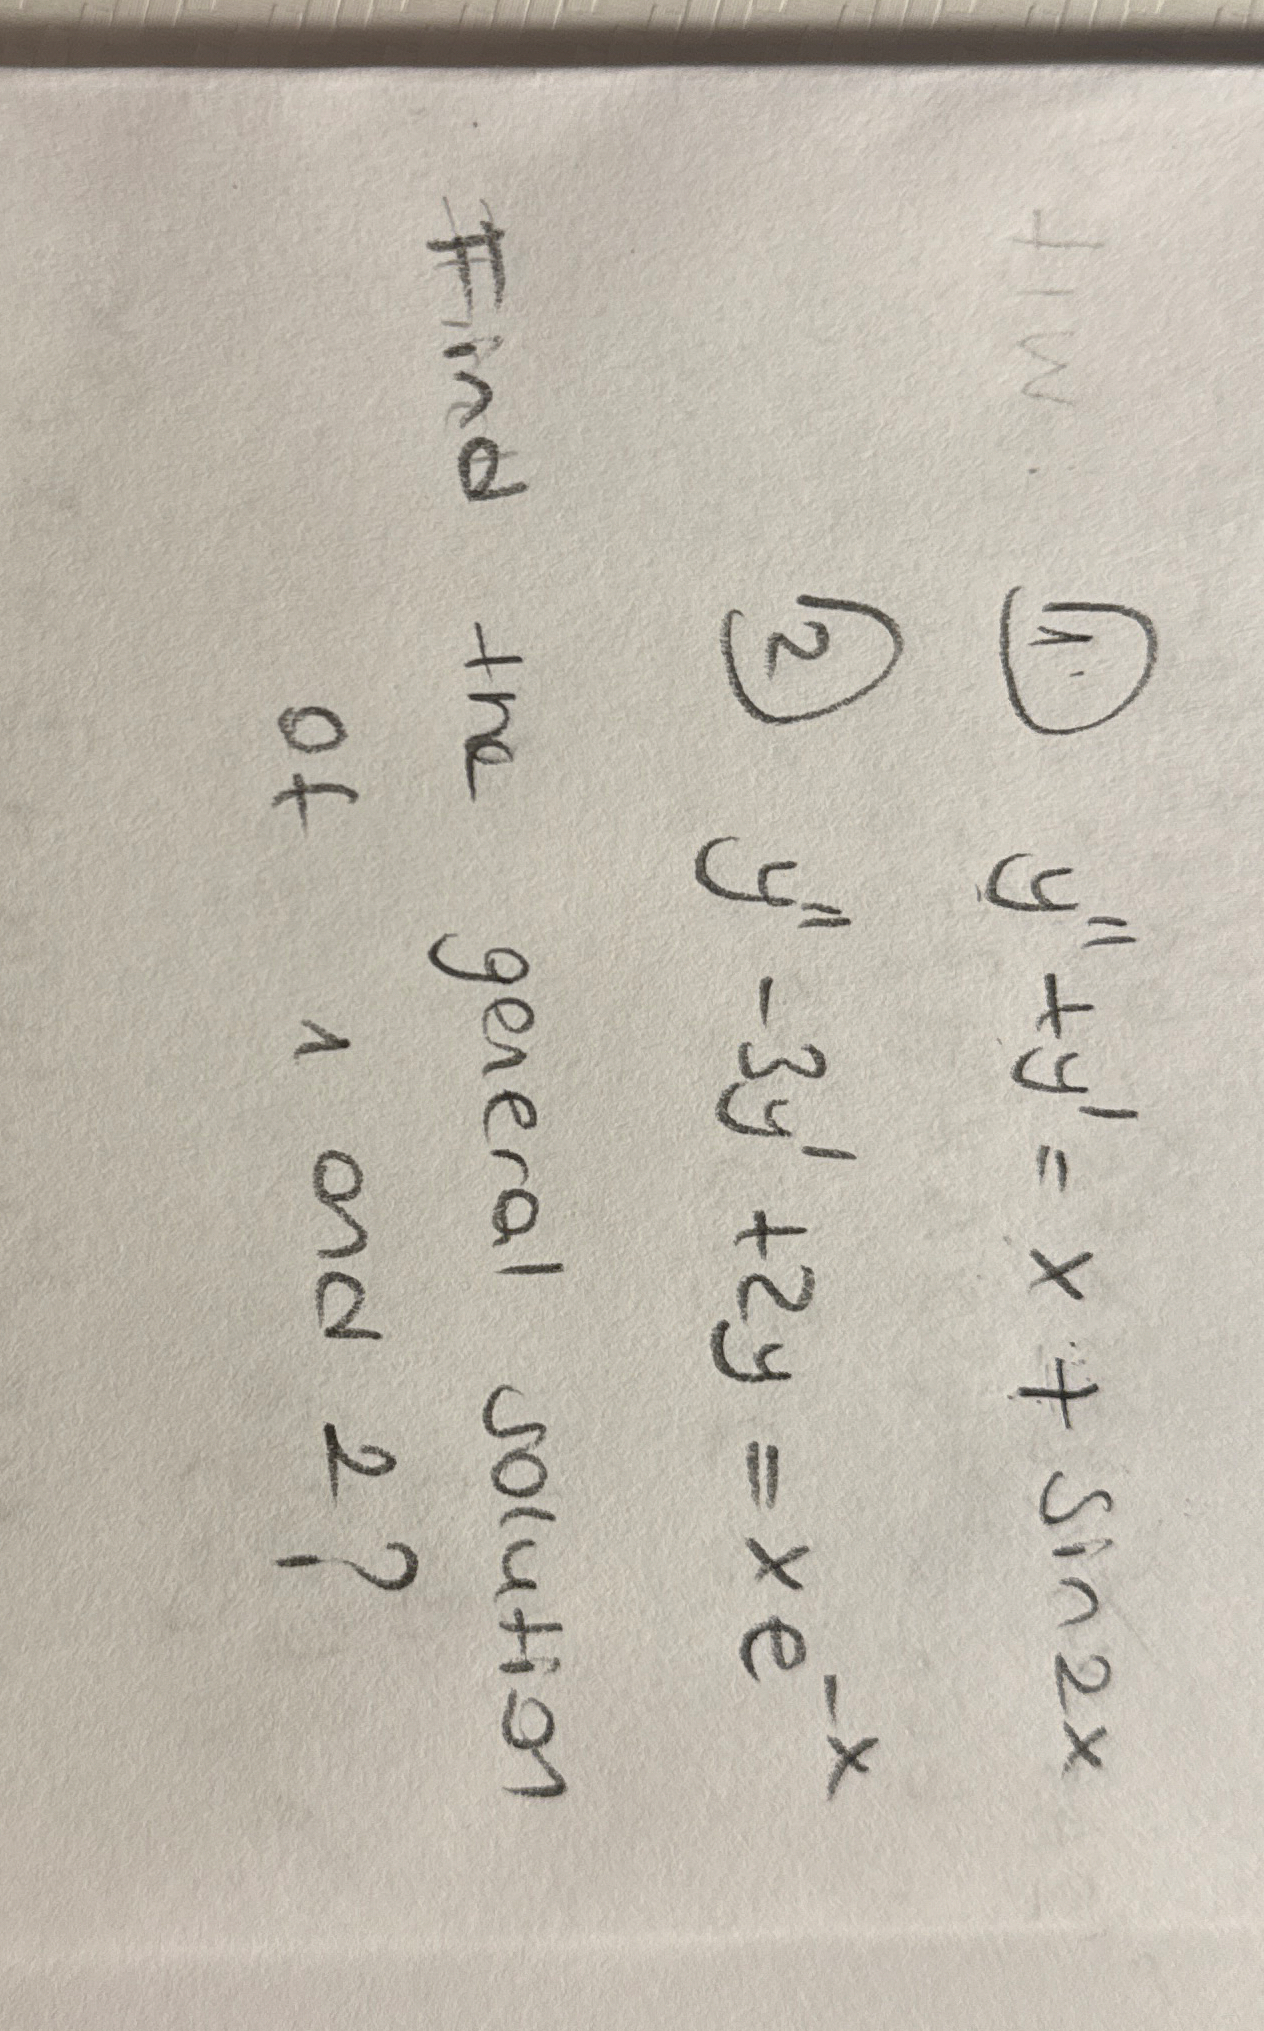 HW. ① y'' + y' = x + sin2x
② y'' - 3y' + 2y = xe^-x
Find the general solution
of 1 and 2?